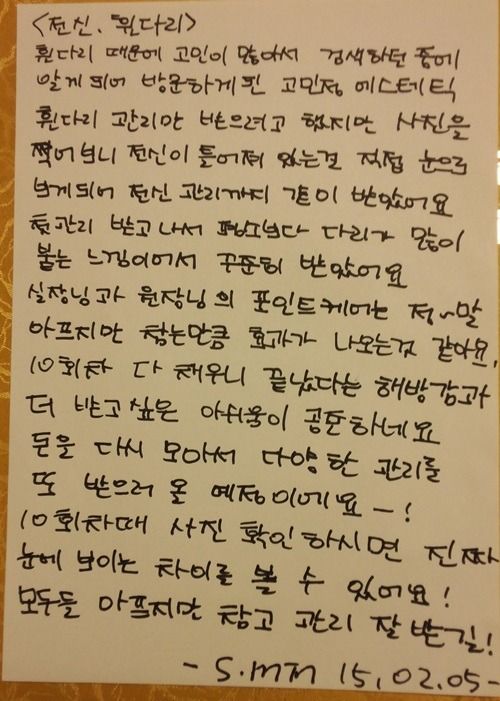 <전신, 휜다리>
휜다리 때문에 고민이 많아서 검색하던 중에
알게되어 방문하게된 고민정 에스테틱
휜다리 관리만 받으려고 했지만 사진을
찍어보니 전신이 틀어져 있는걸 직접 눈으로
보게되어 전신 관리까지 같이 받았어요
첫관리 받고 나서 평소보다 다리가 많이
붙는 느낌이어서 꾸준히 받았어요
실장님과 원장님의 포인트케어는 정~말
아프지만 참는만큼 효과가 나오는것 같아요.
10회차 다 채우니 끝났다는 해방감과
더 받고 싶은 아쉬움이 공존하네요
돈을 다시 모아서 다양한 관리를
또 받으러 올 예정이에요 ー!
10회차때 사진 확인하시면 진짜
눈에 보이는 차이를 볼 수 있어요!
모두들 아프지만 참고 관리 잘 받길!
- S.mm 15.02.05-